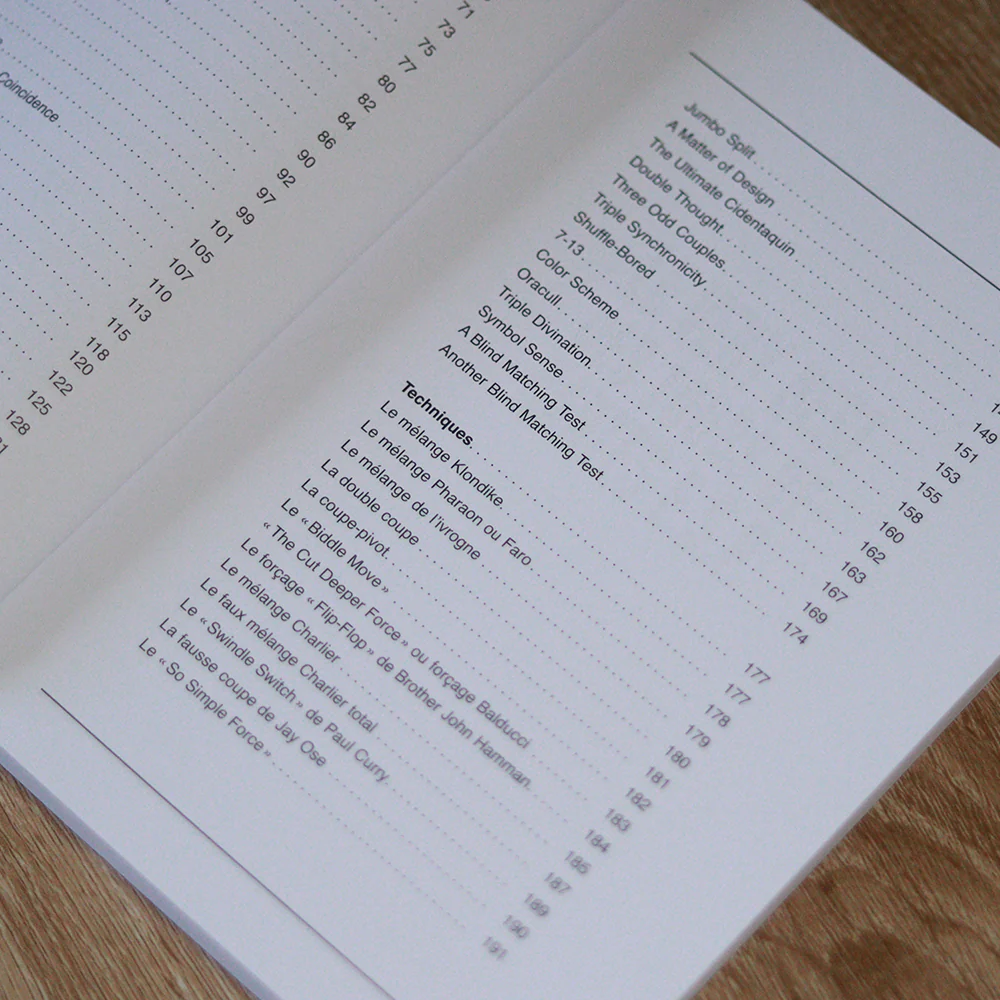 Coincidence
71
73
75
77
80
82
84
86
90
92
97
99
101
105
107
110
113
115
118
120
122
125
128
Jumbo Split
A Matter of Design
The Ultimate Cidentaquin
Double Thought 149
Three Odd Couples 151
Triple Synchronicity 153
Shuffle-Bored 155
7-13 158
Color Scheme 160
Oracull 162
Triple Divination 163
Symbol Sense 167
A Blind Matching Test 169
Another Blind Matching Test 174
Techniques 177
Le mélange Klondike 177
Le mélange Pharaon ou Faro 178
Le mélange de l'ivrogne 179
La double coupe 180
La coupe-pivot 181
Le « Biddle Move » 182
« The Cut Deeper Force » ou forçage Balducci 183
Le forçage « Flip-Flop » de Brother John Hamman 184
Le mélange Charlier 185
Le faux mélange Charlier total 187
Le « Swindle Switch » de Paul Curry 189
La fausse coupe de Jay Ose 190
Le « So Simple Force » 191